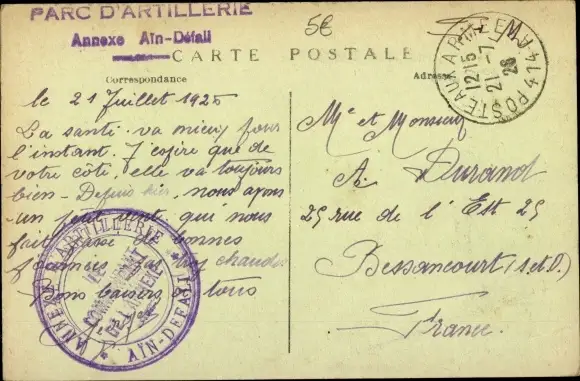 PARC D'ARTILLERIE
Annexe Aïn-Défali
5€
CARTE POSTALE
Correspondance
Adresse
POSTE AUX ARMEES 414
12 15
21 - 7
le 21 Juillet 1925
La santé va mieux pour
l'instant. J'espère que de
votre côté, elle va toujours
bien - Depuis hier, nous avons
un peu qui nous
fait de bonnes
chaudes
Bons baisers à tous
ANNEXE ARTILLERIE AÏN-DEFALI
LE COMMANDANT DE L'ANNEXE
Mr et Monsieur
A. Durand
25 rue de l'Est 25
Bessancourt (S. et O.)
France.